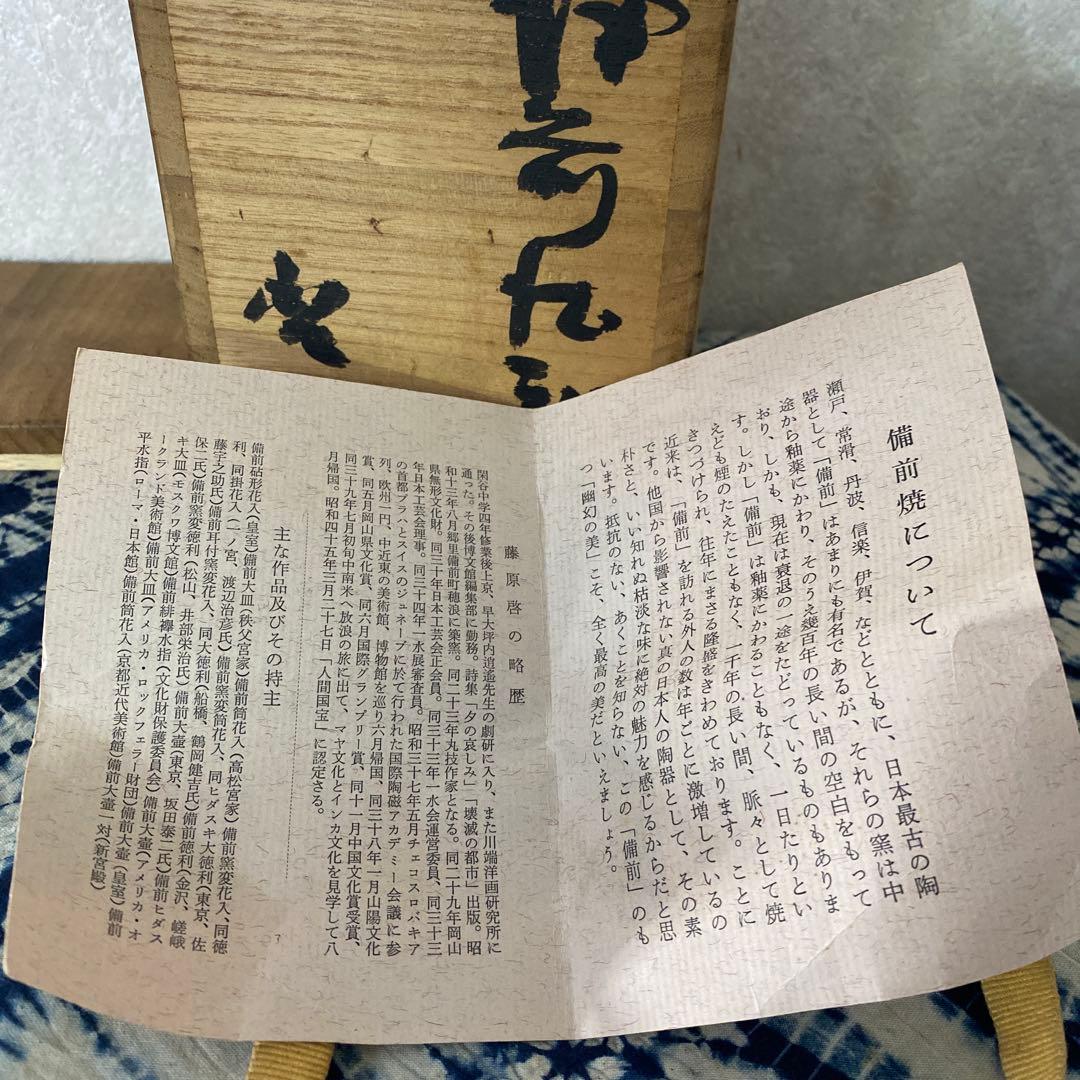 備前焼について
瀬戸、常滑、丹波、信楽、伊賀、などとともに、日本最古の陶
器として「備前」はあまりにも有名であるが、それらの窯は中
途から釉薬にかわり、そのうえ幾百年の長い間の空白をもって
おり、しかも、現在は衰退の一途をたどっているものもありま
す。しかし「備前」は釉薬にかわることもなく、一日たりとい
えども煙のたえたこともなく、一千年の長い間、脈々として焼
きつづけられ、往年にまさる隆盛をきわめております。ことに
近来は、「備前」を訪れる外人の数は年ごとに激増しているの
です。他国から影響されない真の日本人の陶器として、その素
朴さと、いい知れぬ枯淡な味に絶対の魅力を感じるからだと思
います。抵抗のない、あくことを知らない、この「備前」のも
つ「幽幻の美」こそ、全く最高の美だといえましょう。
藤原啓の略歴
閑谷中学四年修業後上京、早大坪内逍遙先生の劇研に入り、また川端洋画研究所に
通った。その後博文館編集部に勤務。詩集「夕の哀しみ」「壊滅の都市」出版。昭
和十三年八月郷里備前町穂浪に築窯。同二十三年丸技作家となる。同二十九年岡山
県無形文化財。同三十年日本工芸会正会員。同三十三年一水会運営委員、同三十三
年日本工芸会理事。同三十四年一水展審査員。昭和三十七年五月チェコスロバキア
の首都プラハとスイスのジュネーブに於て行われた国際陶磁アカデミー会議に参
列、欧州一円、中近東の美術館、博物館を巡り六月帰国、同三十八年一月山陽文化
賞、同五月岡山県文化賞、同六月国際グランプリー賞、同十一月中国文化賞受賞、
同三十九年七月初旬中南米へ放浪の旅に出て、マヤ文化とインカ文化を見学して八
月帰国。昭和四十五年三月二十七日「人間国宝」に認定さる。
主な作品及びその持主
備前砧形花入(皇室)備前大皿(秩父宮家)備前筒花入(高松宮家)備前窯変花入、同徳
利、同掛花入(一ノ宮、渡辺治彦氏)備前窯変筒花入、同ヒダスキ大徳利(東京、佐
藤宇之助氏)備前耳付窯変花入、同大徳利(船橋、鶴岡健吉氏)備前徳利(金沢、嵯峨
保二氏)備前窯変徳利(松山、井部栄治氏)備前大壷(東京、坂田泰二氏)備前ヒダス
キ大皿(モスクワ博文館)備前緋襷水指(文化財保護委員会)備前大壷(アメリカ・オ
ークランド美術館)備前大皿(アメリカ・ロックフェラー財団)備前大壷(皇室)備前
平水指(ローマ・日本館)備前筒花入(京都近代美術館)備前大壷一対(新宮殿)